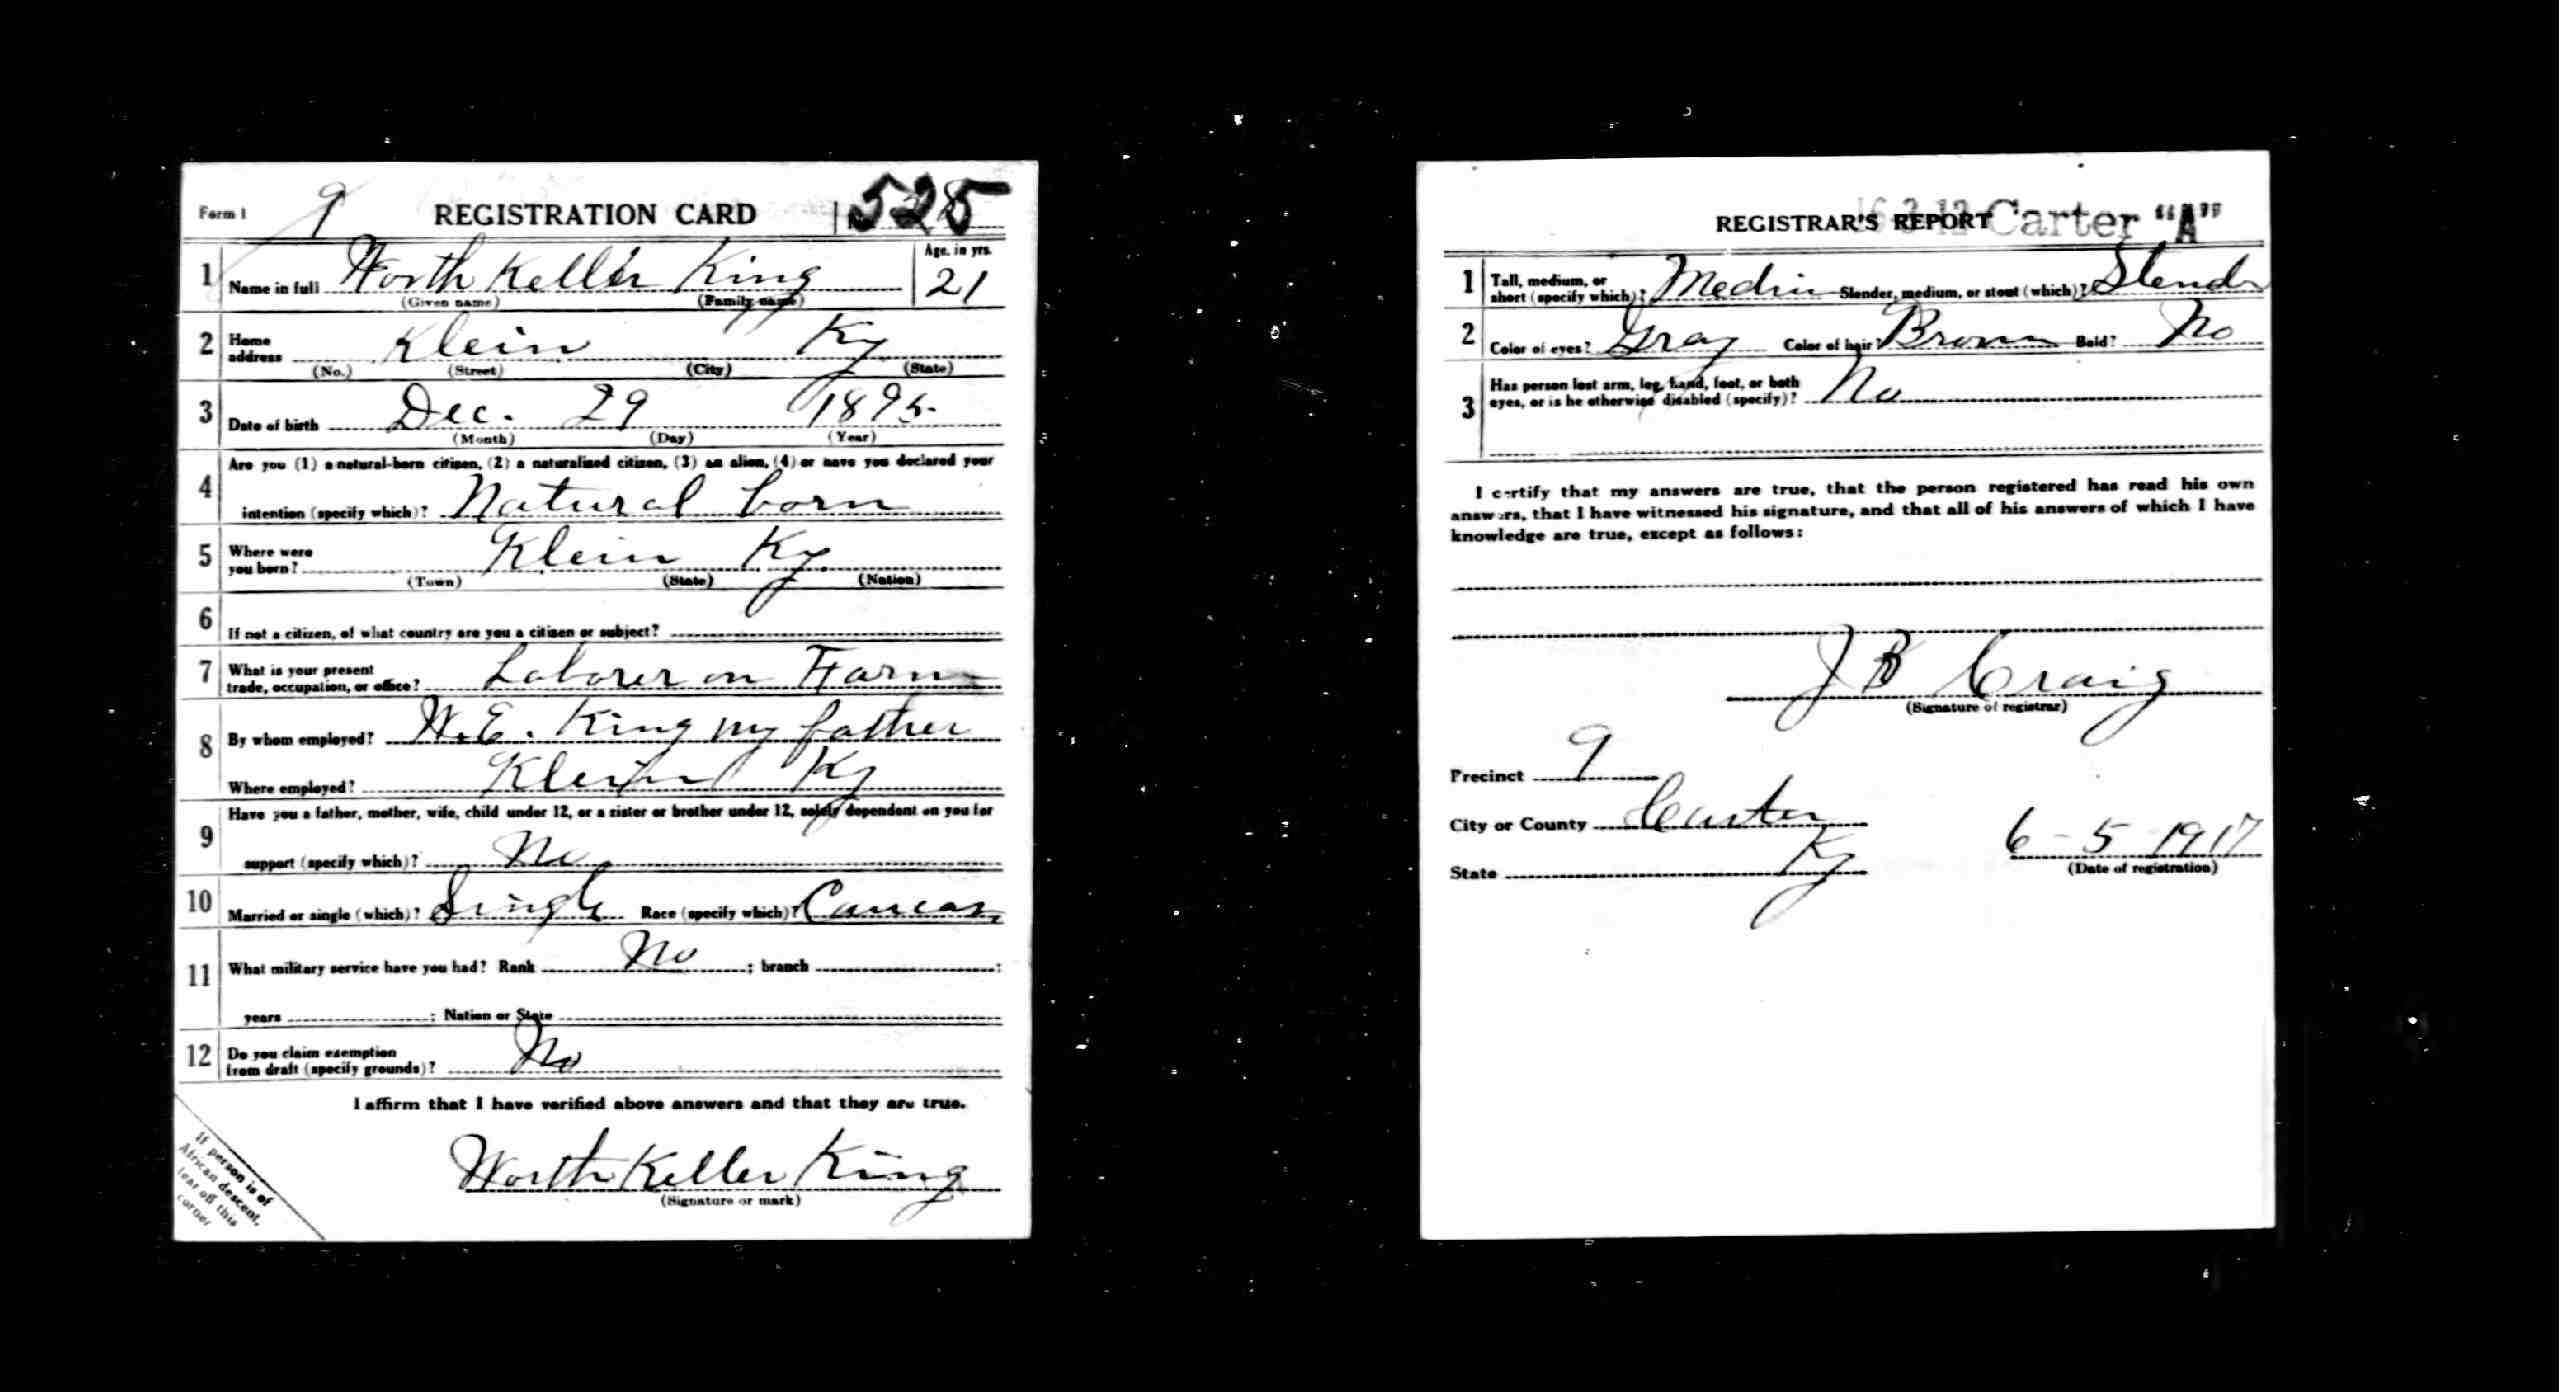 Form 1 9 REGISTRATION CARD 525
1 Name in full Worth Keller King Age, in yrs. 21
(Given name) (Family name)
2 Home address Klein Ky
(No.) (Street) (City) (State)
3 Date of birth Dec. 29 1895
(Month) (Day) (Year)
4 Are you (1) a natural-born citizen, (2) a naturalized citizen, (3) an alien, (4) or have you declared your
intention (specify which)? Natural born
5 Where were you born? Klein Ky
(Town) (State) (Nation)
6 If not a citizen, of what country are you a citizen or subject?
7 What is your present trade, occupation, or office? Laborer on Farm
8 By whom employed? W.E. King my father
Where employed? Klein Ky
9 Have you a father, mother, wife, child under 12, or a sister or brother under 12, solely dependent on you for
support (specify which)? No
10 Married or single (which)? Single Race (specify which)? Caucas
11 What military service have you had? Rank No ; branch ;
years ; Nation or State
12 Do you claim exemption from draft (specify grounds)? No
I affirm that I have verified above answers and that they are true.
Worth Keller King
(Signature or mark)
If person is of
African descent,
tear off this
corner
REGISTRAR'S REPORT Carter "A"
1 Tall, medium, or short (specify which)? Medium Slender, medium, or stout (which)? Slender
2 Color of eyes? Gray Color of hair Brown Bald? No
3 Has person lost arm, leg, hand, foot, or both
eyes, or is he otherwise disabled (specify)? No
I certify that my answers are true, that the person registered has read his own
answers, that I have witnessed his signature, and that all of his answers of which I have
knowledge are true, except as follows:
J B Craig
(Signature of registrar)
Precinct 9
City or County Carter
State Ky 6-5-1917
(Date of registration)